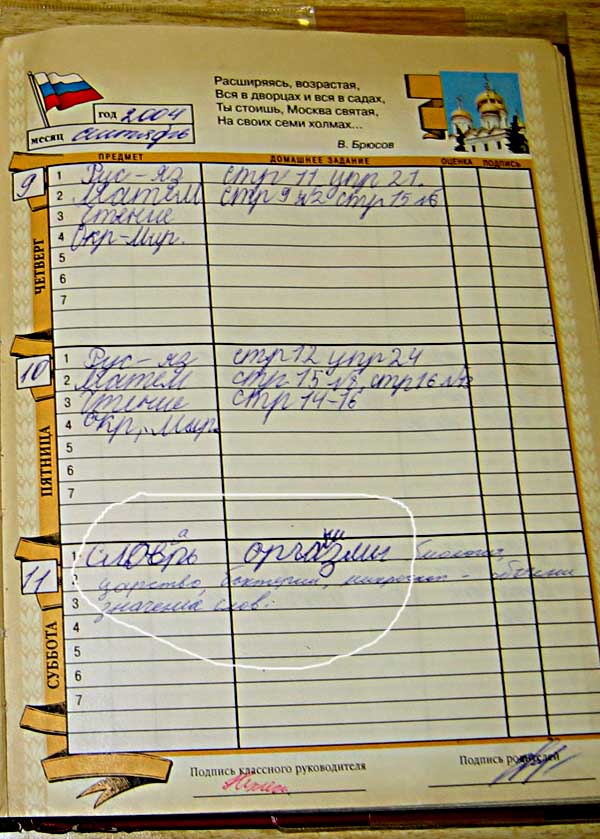 Расширяясь, возрастая,
Вся в дворцах и вся в садах,
Ты стоишь, Москва святая,
На своих семи холмах...
В. Брюсов
год 2004
месяц сентябрь
ПРЕДМЕТ ДОМАШНЕЕ ЗАДАНИЕ ОЦЕНКА ПОДПИСЬ
9 ЧЕТВЕРГ
1 Рус-яз стр 11 упр 21.
2 Матем стр 9 №2 стр 15 №6
3 Чтение
4 Окр-Мир.
5
6
7
10 ПЯТНИЦА
1 Рус-яз стр 12 упр 24
2 Матем стр 15 №8, стр 16
3 Чтение стр 14-16
4 Окр, Мир.
5
6
7
11 СУББОТА
1 словарь организмы биология,
2 царство, бактерии, микроскоп -
3 значения слов.
4
5
6
7
Подпись классного руководителя
Подпись родителей